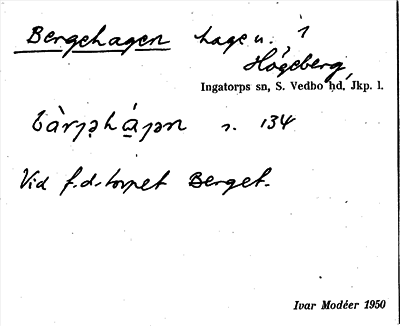 Bergehagen hage u. 1
Högeberg,
Ingatorps sn, S. Vedbo hd, Jkp. l.
s. 134
Vid f.d. torpet Berget.
Ivar Modéer 1950